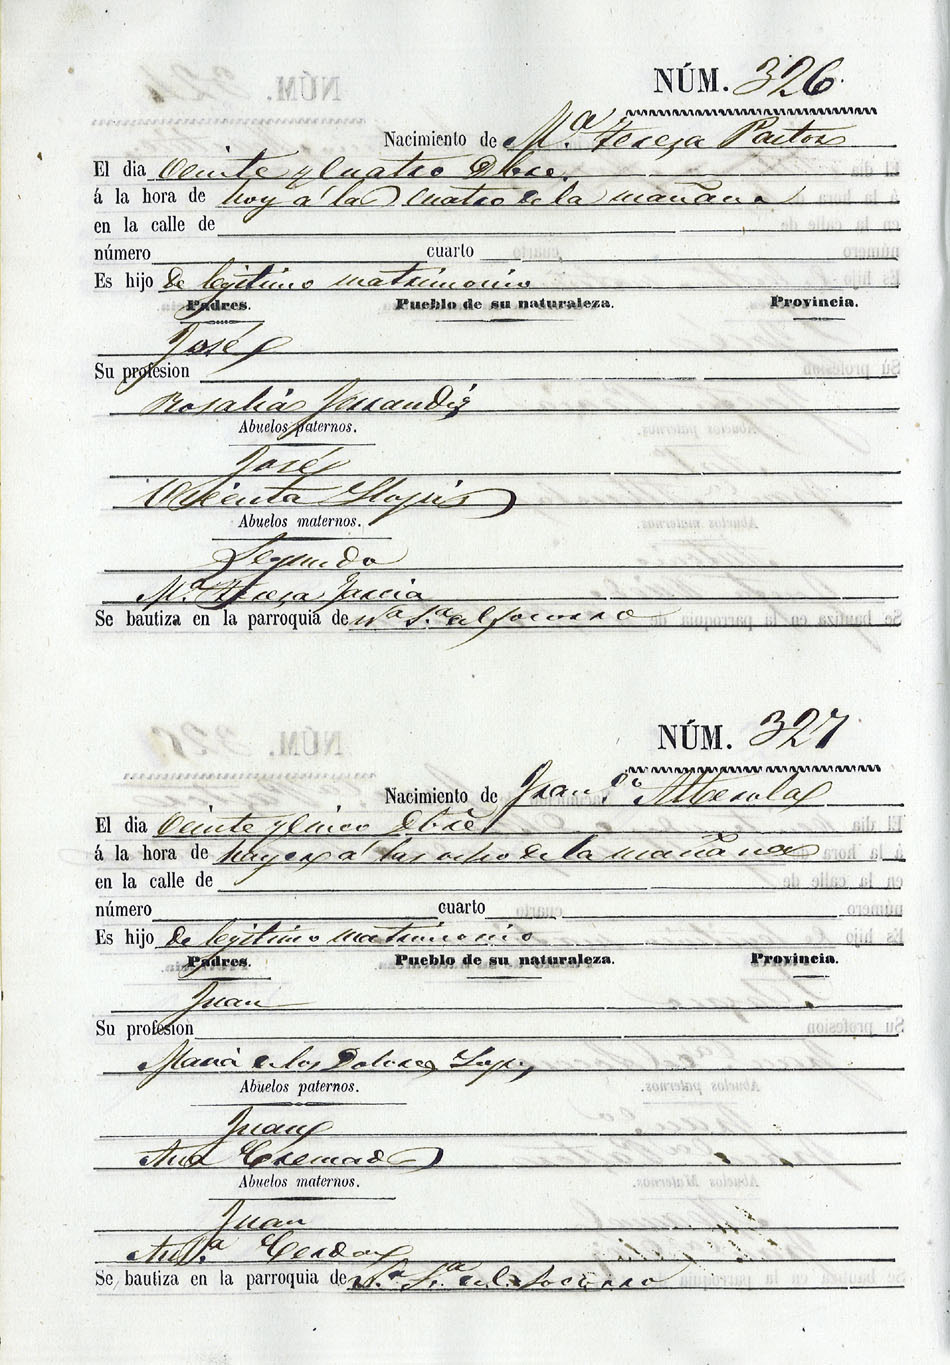 NÚM. 326
Nacimiento de M.ª Tereza Pastor
El dia veinte y cuatro Dbre.
á la hora de hoy á la cuatro de la mañana
en la calle de
número cuarto
Es hijo de legitimo matrimonio
Padres. Pueblo de su naturaleza. Provincia.
José
Su profesion
Rosalia Ferrandiz
Abuelos paternos.
José
Vicenta Llopis
Abuelos maternos.
Segundo
M.ª Tereza Garcia
Se bautiza en la parroquia de N.ª S.ª del Socorro
NÚM. 327
Nacimiento de Fran.co Alberola
El dia veinte y cinco Dbre
á la hora de hayer á las ocho de la mañana
en la calle de
número cuarto
Es hijo de legitimo matrimonio
Padres. Pueblo de su naturaleza. Provincia.
Juan
Su profesion
Maria de los Dolores
Abuelos paternos.
Juan
Ana Cremades
Abuelos maternos.
Juan
Cerdá
Se bautiza en la parroquia de N.ª S.ª del Socorro